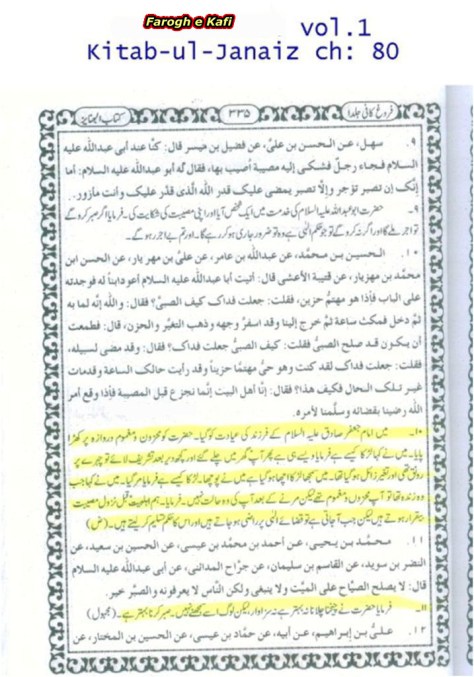 Farogh e Kafi
vol.1
Kitab-ul-Janaiz ch: 80
فروغ کافی جلد۱
۳۳۵
کتاب الجنایز
۹. سهل، عن الحسن بن علیّ، عن فضیل بن میسر قال: کنّا عند أبی عبدالله علیه
السلام فجاء رجلٌ فشکی إلیه مصیبة أصیب بها، فقال له أبو عبدالله علیه السلام: أما
إنّک إن تصبر تؤجر وإلّا تصبر یمضی علیک قدر الله الّذی قدّر علیک وأنت مأزور.
۹۔ حضرت ابو عبداللہ علیہ السلام کی خدمت میں ایک شخص آیا اور اپنی مصیبت کی شکایت کی۔ فرمایا اگر صبر کرو گے
تو اجر ملے گا اور اگر نہ کرو گے تو جو حکم الٰہی ہے وہ تو ضرور جاری ہو کر رہے گا۔ اور تم بے اجر رہو گے۔
۱۰. الحسین بن محمّد، عن عبدالله بن عامر، عن علیّ بن مهزیار، عن الحسن ابن
محمّد بن مهزیار، عن قتیبة الأعشی قال: أتیت أبا عبدالله علیه السلام أعود ابناً له فوجدته
علی الباب فإذا هو مهتمٌّ حزین، فقلت: جعلت فداک کیف الصبیّ؟ فقال: والله إنّه لما به
ثمّ دخل فمکث ساعة ثمّ خرج إلینا وقد اسفرّ وجهه وذهب التغیّر والحزن، قال: فطمعت
أن یکون قد صلح الصبیّ فقلت: کیف الصبیّ جعلت فداک؟ فقال: وقد مضی لسبیله،
فقلت: جعلت فداک لقد کنت وهو حیٌّ مهتمّاً حزیناً وقد رأیت حالک الساعة وقد مات
غیر تلک الحال فکیف هذا؟ فقال: إنّا أهل البیت إنّما نجزع قبل المصیبة فإذا وقع أمر
الله رضینا بقضائه وسلّمنا لأمره.
۱۰۔ میں امام جعفر صادق علیہ السلام کے فرزند کی عیادت کو گیا۔ حضرت کو محزون و مغموم دروازہ پر کھڑا
پایا۔ میں نے کہا لڑکا کیسا ہے فرمایا ویسے ہی ہے پھر آپ گھر میں چلے گئے اور کچھ دیر بعد تشریف لائے تو چہرے پر
رونق تھی اور تغیر زائل ہو گیا تھا۔ میں سمجھا لڑکا اچھا ہو گیا ہے میں نے پوچھا۔ لڑکا کیسا ہے فرمایا مر گیا۔ میں نے کہا جب
وہ زندہ تھا تو آپ محزون و مغموم تھے لیکن مرنے کے بعد آپ کی وہ حالت نہیں۔ فرمایا۔ ہم اہلبیت قبل نزول مصیبت
بیقرار ہوتے ہیں لیکن جب آ جاتی ہے تو قضائے الٰہی پر راضی ہو جاتے ہیں اور اس کا حکم تسلیم کر لیتے ہیں۔ (ض)
۱۱. محمّد بن یحیی، عن أحمد بن محمّد بن عیسی، عن الحسین بن سعید، عن
النضر بن سوید، عن القاسم بن سلیمان، عن جرّاح المدائنی، عن أبی عبدالله علیه السلام
قال: لا یصلح الصیاح علی المیّت ولا ینبغی ولکن النّاس لا یعرفونه والصبر خیر.
۱۱۔ فرمایا حضرت نے چیخنا چلانا نہ بہتر ہے نہ سزاوار لیکن لوگ اسے سمجھتے نہیں۔ صبر کرنا بہتر ہے۔ (مجہول)
۱۲. علیّ بن إبراهیم، عن أبیه، عن حمّاد بن عیسی، عن الحسین بن المختار، عن